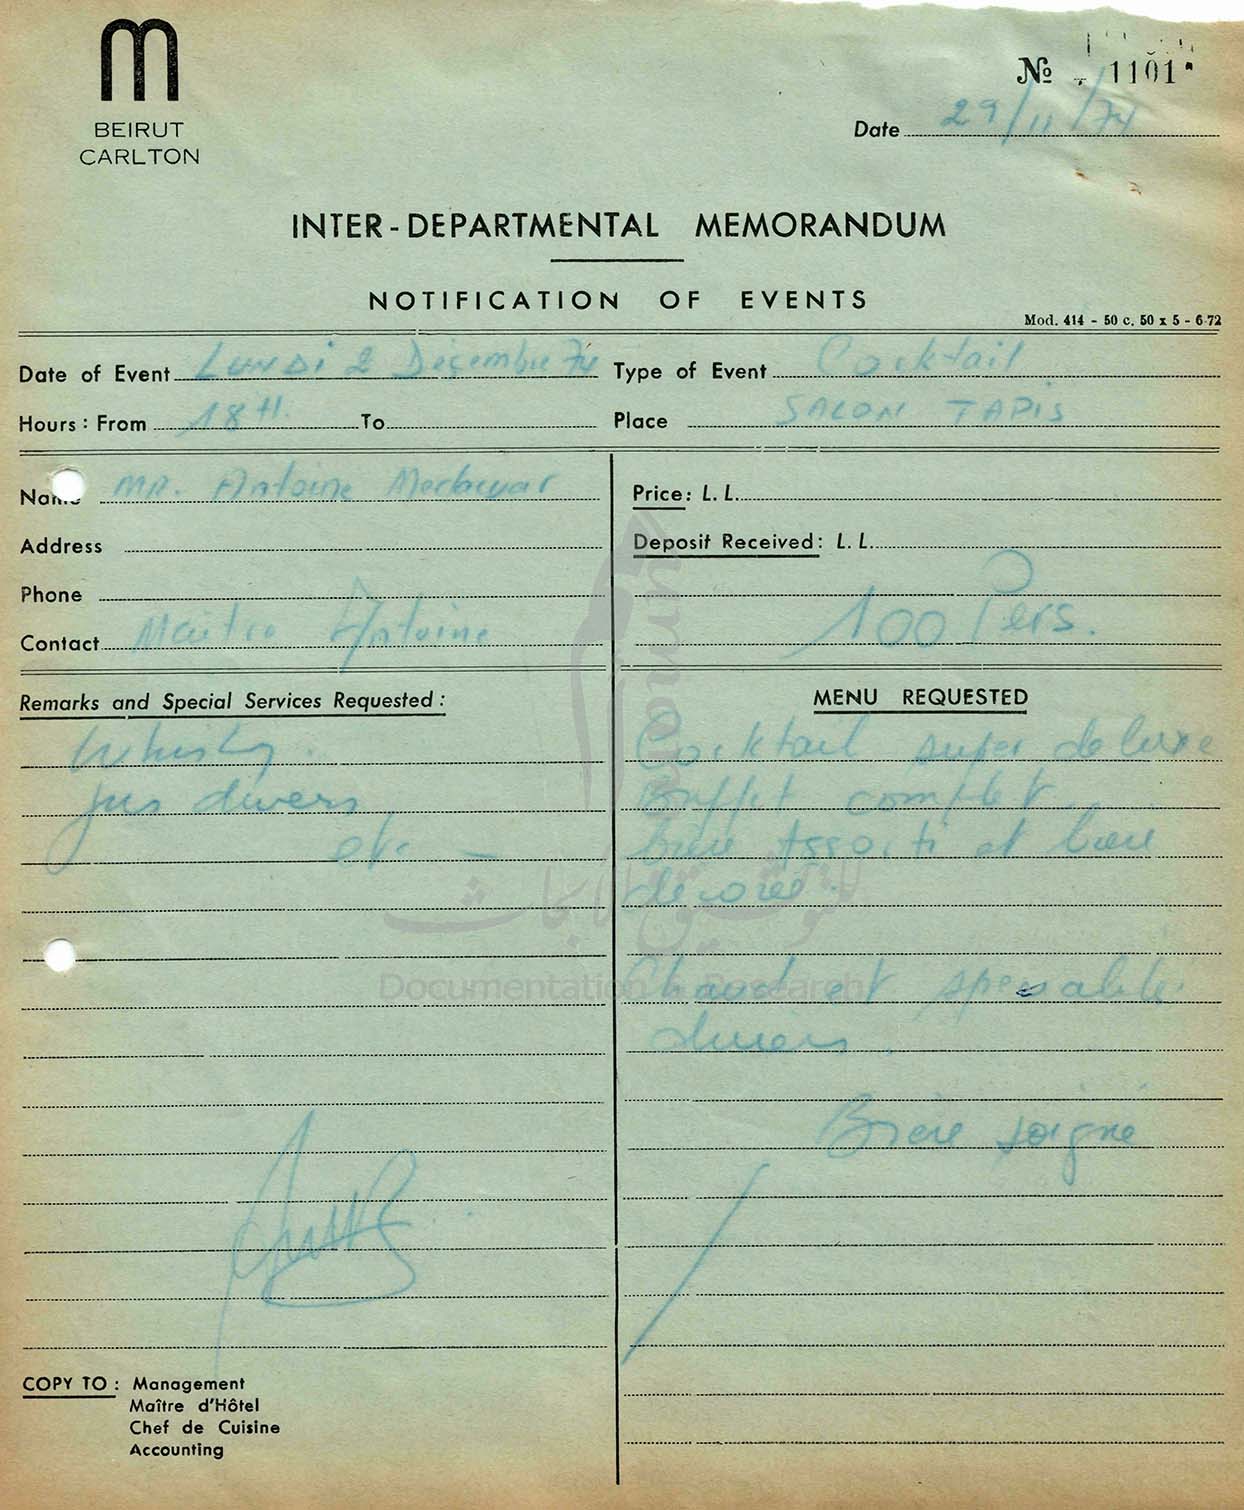 BEIRUT
CARLTON
Nº 1101
Date 29/11/74
INTER-DEPARTMENTAL MEMORANDUM
NOTIFICATION OF EVENTS
Mod. 414 - 50 c. 50 x 5 - 6-72
Date of Event Lundi 2 Décembre 74 Type of Event Cocktail
Hours: From 18 H. To Place SALON TAPIS
Name MR. Antoine
Price: L.L.
Address
Deposit Received: L.L.
Phone
Contact Maitre Antoine
100 Pers.
Remarks and Special Services Requested:
Whisky.
jus divers
etc -
MENU REQUESTED
Cocktail super de luxe
Buffet complet
bien assorti et bien
décoré.
Chaud et spécialité
divers.
Bien soigné
COPY TO: Management
Maître d'Hôtel
Chef de Cuisine
Accounting
Documentation & Research